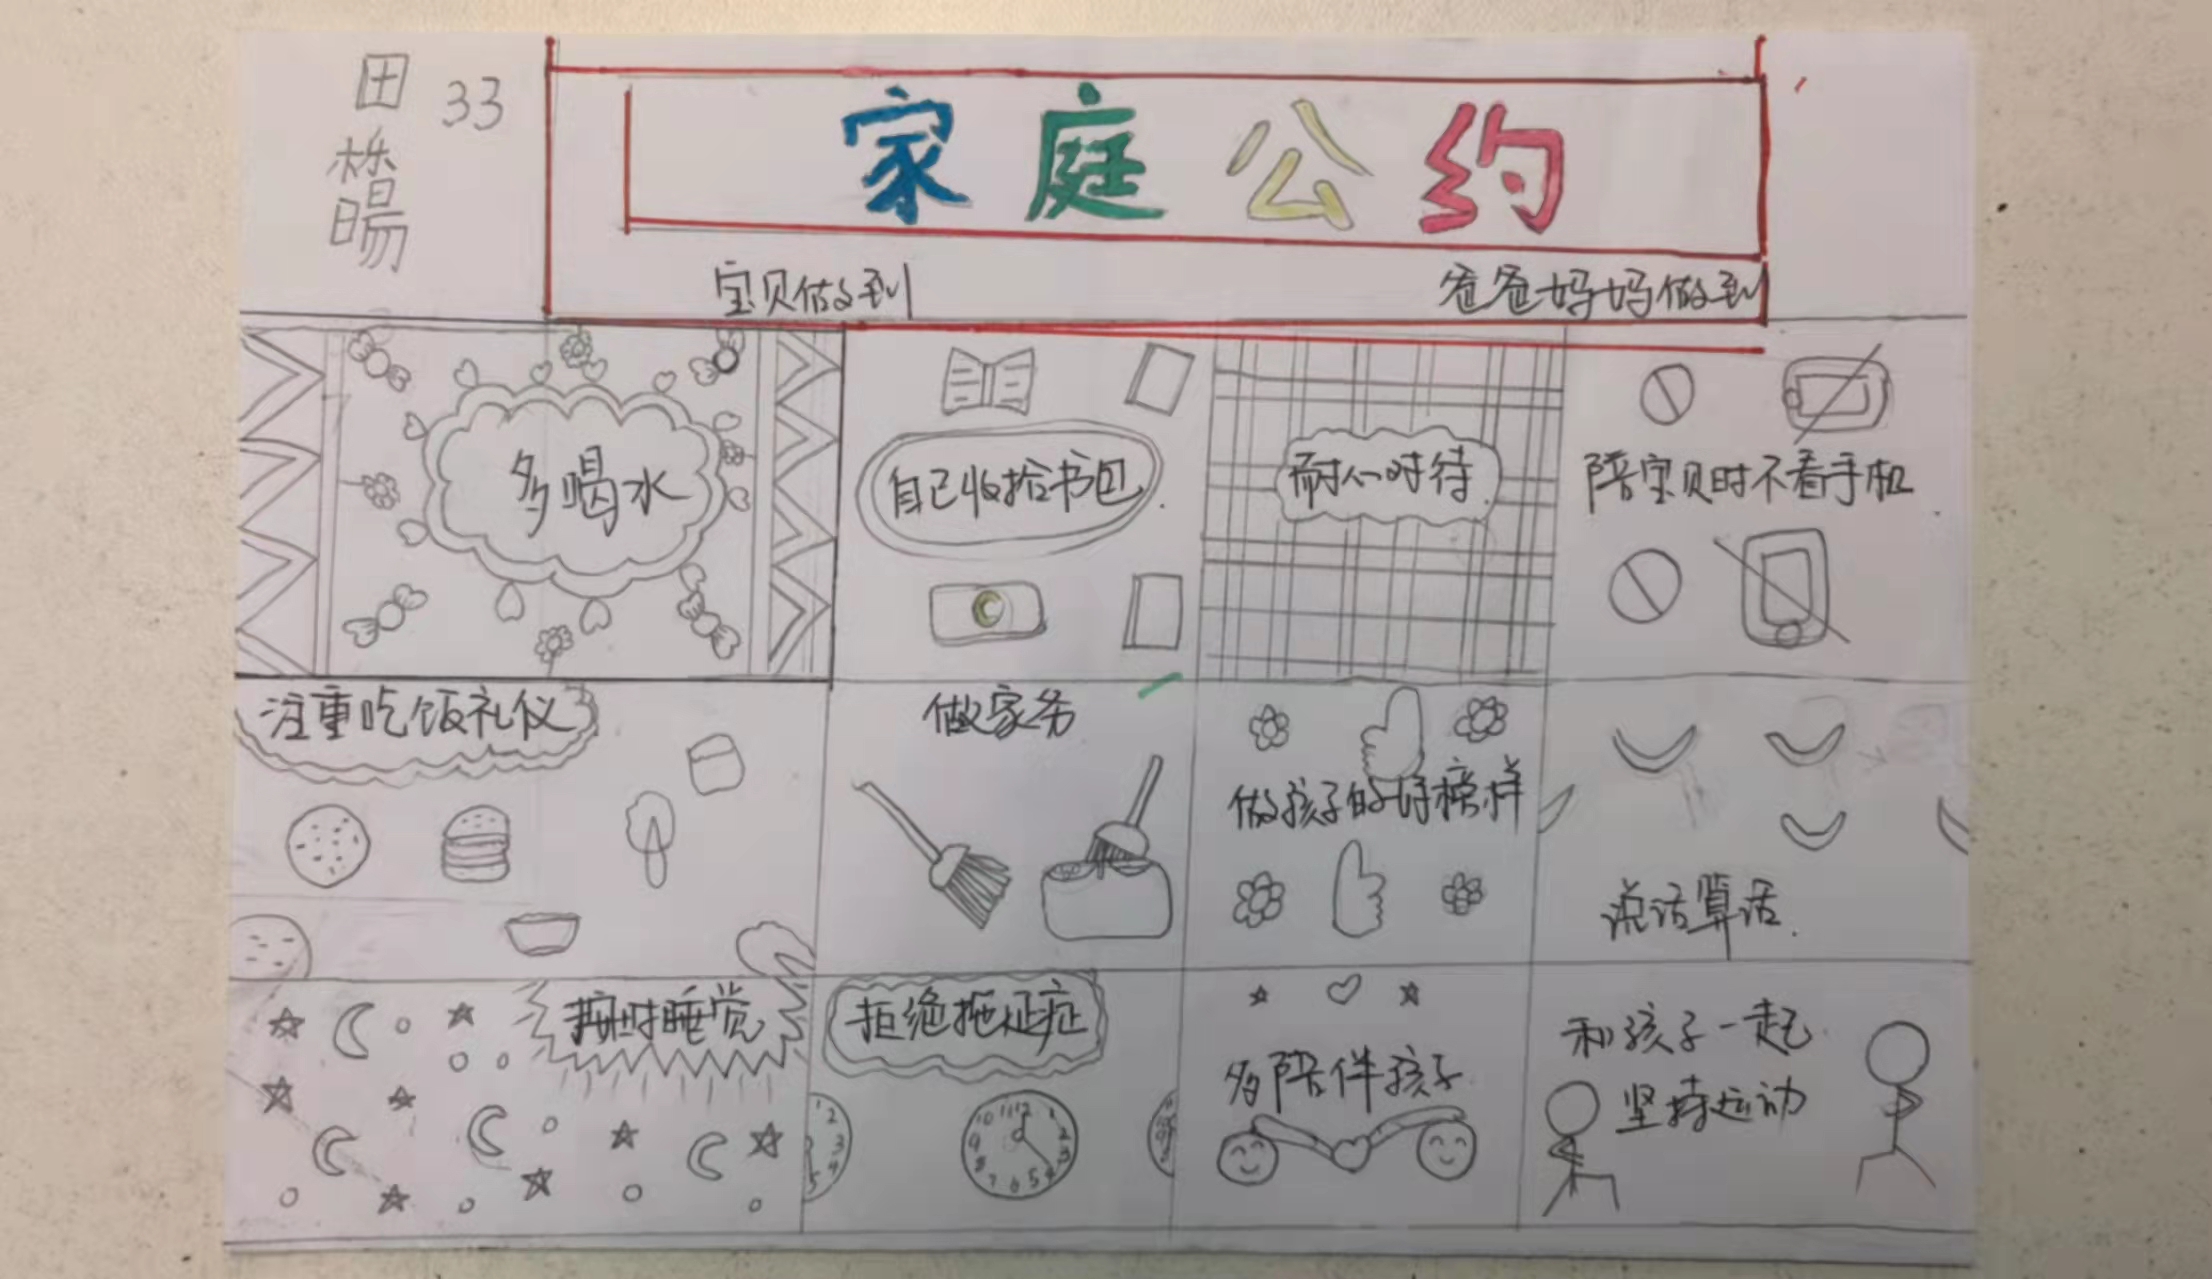 田
33
家庭公约
宝贝做到
爸爸妈妈做到
多喝水
自己收拾书包.
耐心对待.
陪宝贝时不看手机.
注重吃饭礼仪
做家务
做孩子的好榜样
说话算话.
按时睡觉
拒绝拖延症
多陪伴孩子
和孩子一起
坚持运动